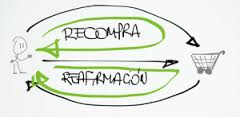 RECOMPRA
REAFIRMACIÓN